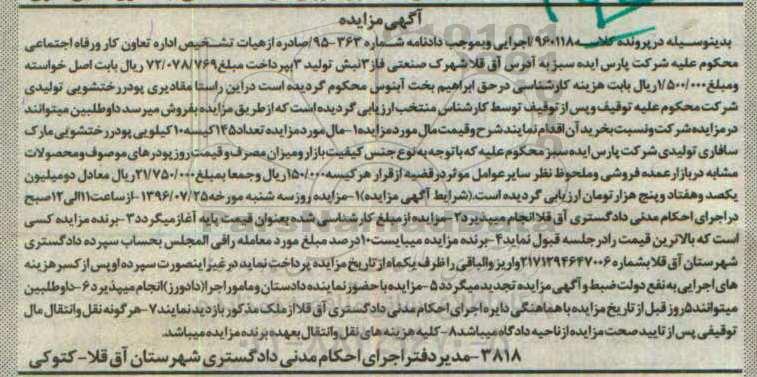 آگهی مزایده
بدینوسیله در پرونده کلاسه ۹۶۰۱۱۸/اجرایی وبموجب دادنامه شماره ۳۶۳-۹۵/صادره از هیات تشخیص اداره تعاون کار ورفاه اجتماعی
محکوم علیه شرکت پارس ایده سبز به آدرس آق قلا شهرک صنعتی فاز۳نبش تولید ۳بپرداخت مبلغ۷۲/۰۷۸/۷۶۹ ریال بابت اصل خواسته
ومبلغ۱/۵۰۰/۰۰۰ریال بابت هزینه کارشناسی درحق ابراهیم بخت آبنوس محکوم گردیده است دراین راستا مقادیری پودررختشویی تولیدی
شرکت محکوم علیه توقیف وپس از توقیف توسط کارشناس منتخب ارزیابی گردیده است که ازطریق مزایده بفروش میرسد داوطلبین میتوانند
درمزایده شرکت ونسبت بخرید آن اقدام نمایند شرح وقیمت مال موردمزایده۱-مال مورد مزایده تعداد۱۴۵کیسه۱۰کیلویی پودررختشویی مارک
سافاری تولیدی شرکت پارس ایده سبز محکوم علیه که باتوجه به نوع جنس کیفیت بازار ومیزان مصرف وقیمت روز پودرهای موصوف ومحصولات
مشابه دربازار عمده فروشی وملحوظ نظر سایر عوامل موثر درقضیه از قرار هر کیسه۱۵۰/۰۰۰ریال وجمعا بمبلغ۲۱/۷۵۰/۰۰۰ریال معادل دومیلیون
یکصد وهفتاد وپنج هزار تومان ارزیابی گردیده است.(شرایط آگهی مزایده)۱-مزایده روز سه شنبه مورخه۱۳۹۶/۰۷/۲۵-از ساعت۱۱الی۱۲صبح
دراجرای احکام مدنی دادگستری آق قلا انجام میپذیرد۲-مزایده از مبلغ کارشناسی شده بعنوان قیمت پایه آغاز میگردد۳-برنده مزایده کسی
است که بالاترین قیمت را در جلسه قبول نماید۴-برنده مزایده میبایست۱۰درصد مبلغ مورد معامله رافی المجلس بحساب سپرده دادگستری
شهرستان آق قلا بشماره ۲۱۷۱۲۹۴۶۴۷۰۰۶واریز والباقی را ظرف یکماه از تاریخ مزایده پرداخت نماید در غیر اینصورت سپرده او پس از کسر هزینه
های اجرایی به نفع دولت ضبط و آگهی مزایده تجدید میگردد۵-مزایده با حضور نماینده دادستان و مامور اجرا(دادورز)انجام میپذیرد۶-داوطلبین
میتوانند۵روز قبل از تاریخ مزایده با هماهنگی دایره اجرای احکام مدنی دادگستری آق قلا از ملک مذکور بازدید نمایند۷-هر گونه نقل وانتقال مال
توقیفی پس از تایید صحت مزایده از ناحیه دادگاه میباشد۸-کلیه هزینه های نقل وانتقال بعهده برنده مزایده میباشد.
۳۸۱۸-مدیر دفتر اجرای احکام مدنی دادگستری شهرستان آق قلا-کتوکی